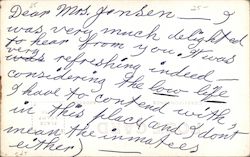 25-
Dear Mrs. Jansen — I
was very much delighted
to hear from you. It was
very
was refreshing indeed —
considering the low life
I have to contend with,
in this place (and I don't
mean the inmates
either)